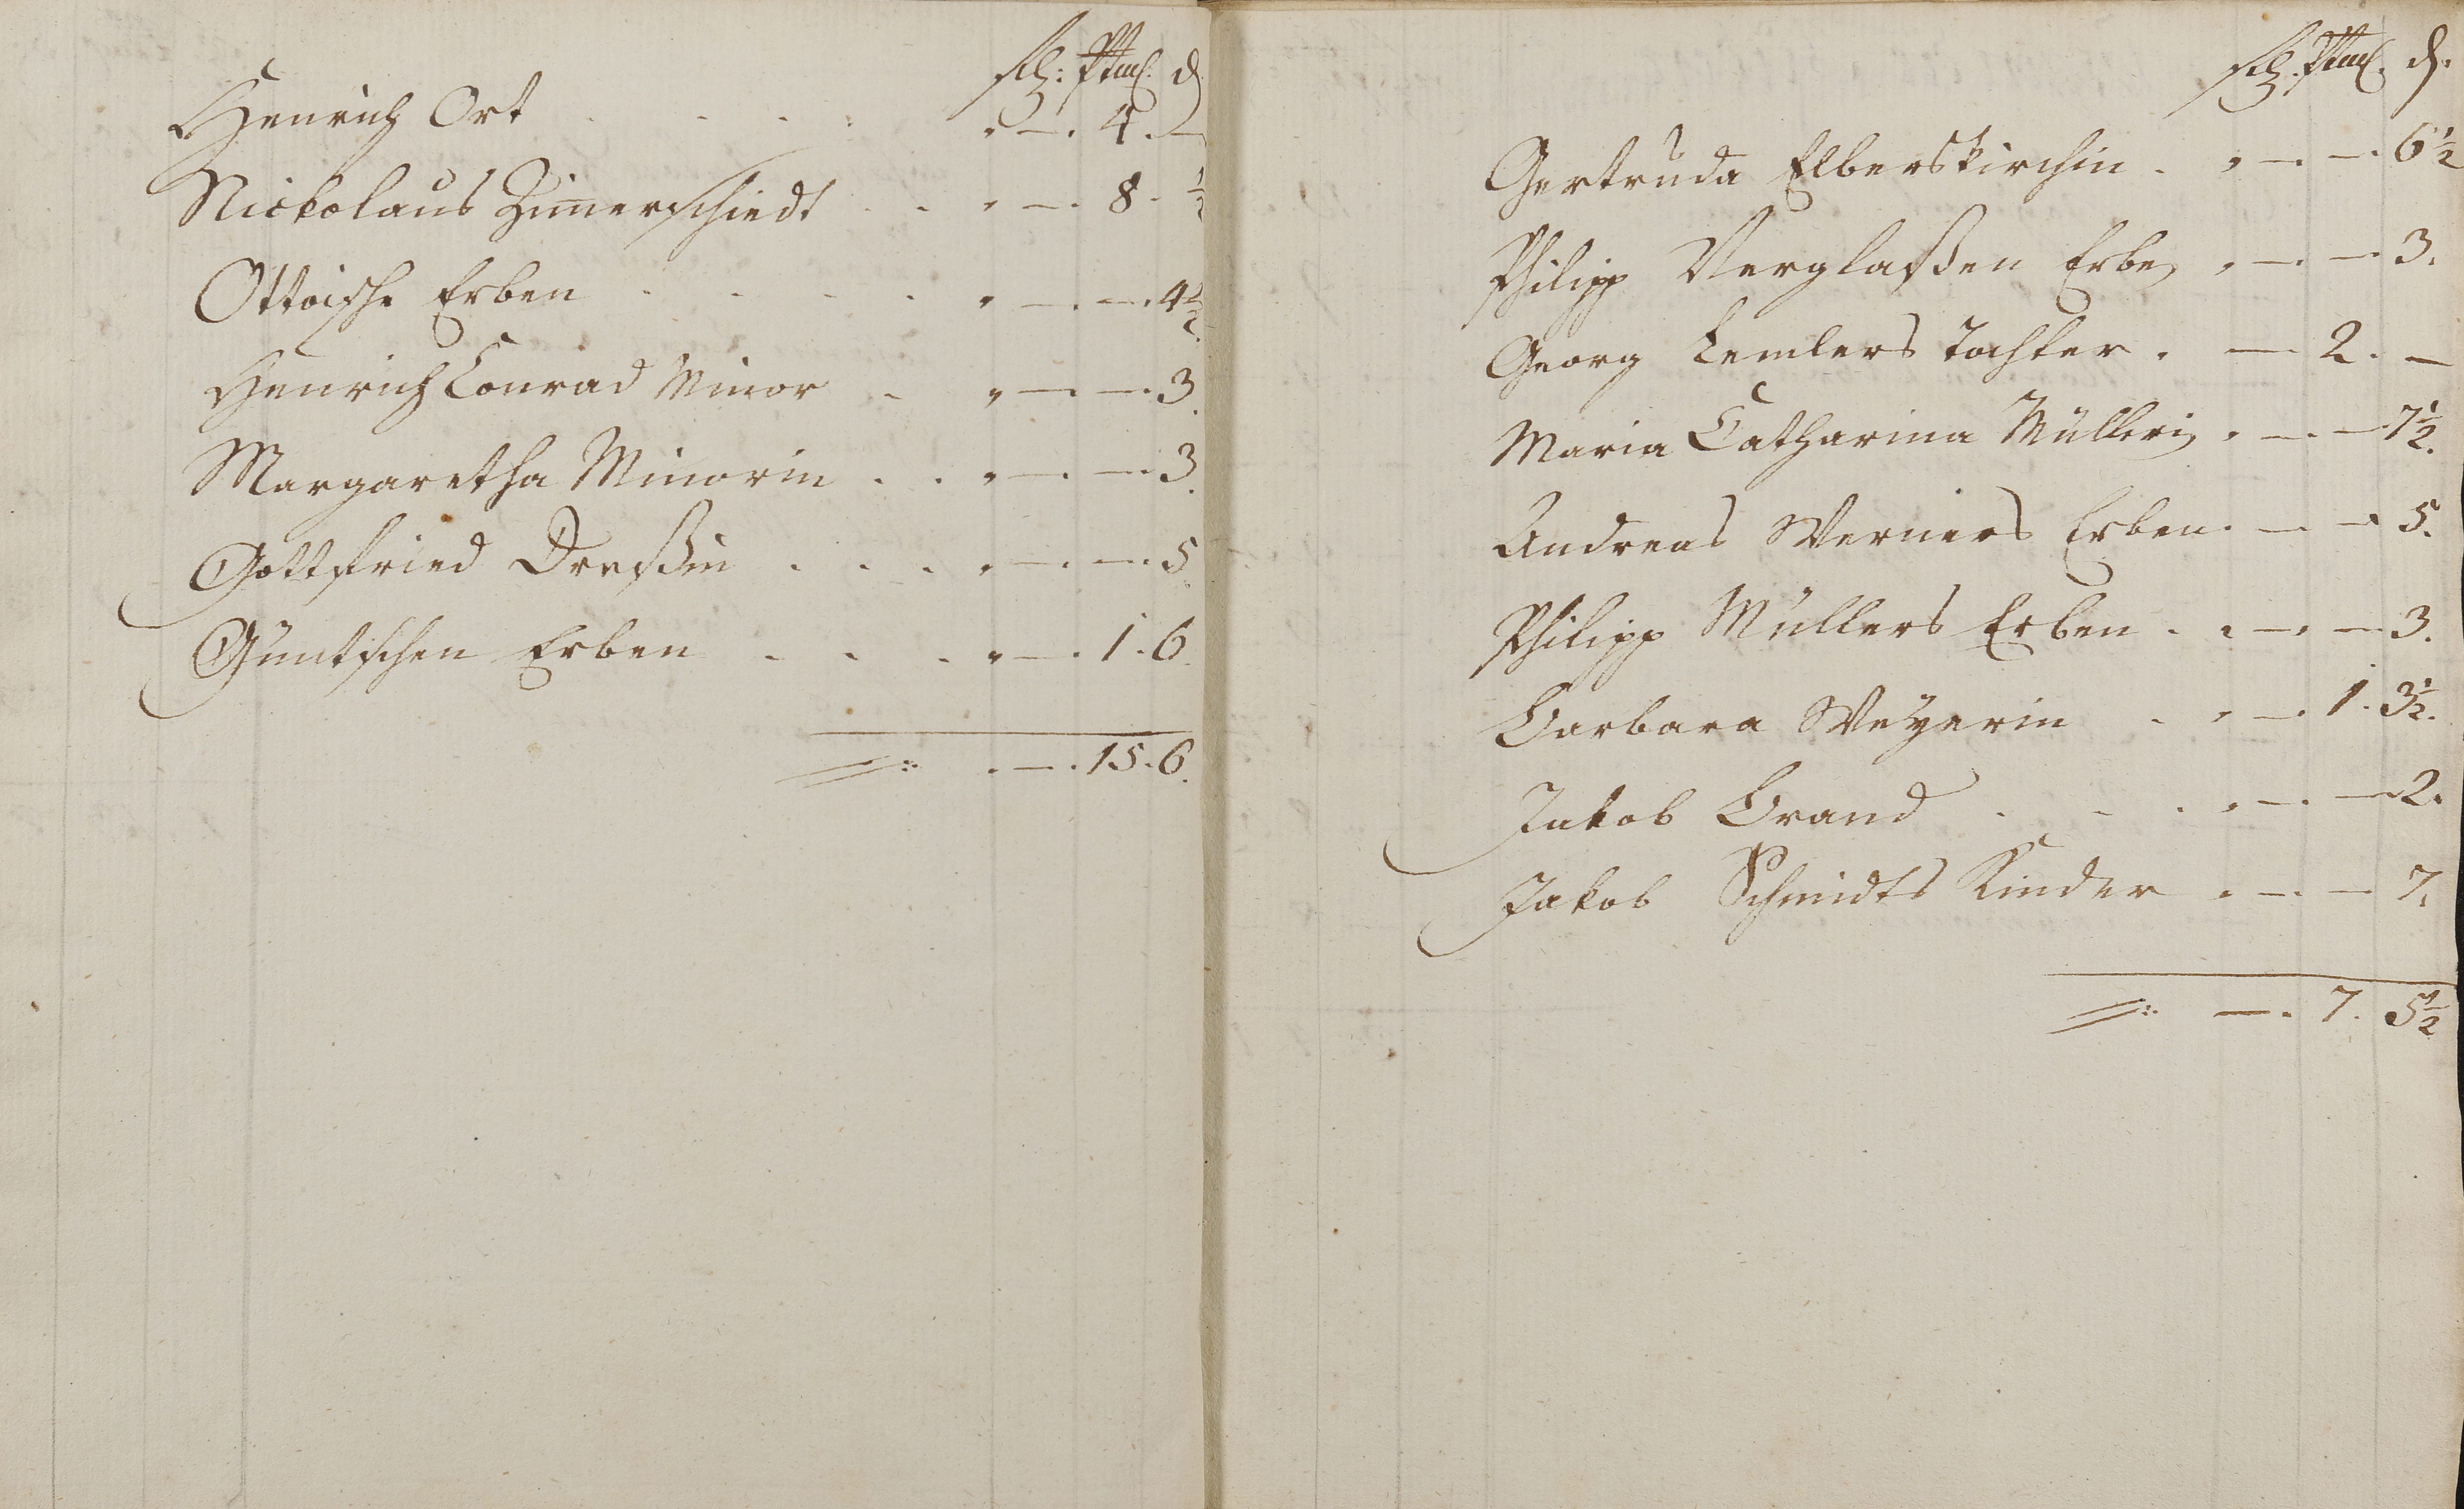 d.
Henrich Ort . . . . . — . 4 . —
Nickolaus Zimerschiedt . . . — . 8 . ½
Ottoische Erben . . . . . — . — . 4½.
Henrich Conrad Minor . . — . — . 3.
Margaretha Minorin . . . — . — . 3.
Gottfried Dreßin . . . . — . — . 5.
Güntschen Erben . . . . — . 1 . 6.
. — . 15 . 6.
d.
Gertruda Elberskirchin . . — . — . 6½
Philipp Verglaßen Erben . — . — 3.
Georg Lemlers Tochter . — 2 . —
Maria Catharina Müllerin . — . — 7½.
Andreas Werners Erben . — . — 5.
Philipp Müllers Erben . . — . — 3.
Barbara Weyerin . . — . 1 . 3½.
Jakob Brand . . . . — . — 2.
Jakob Schmidts Kinder . — . — 7.
— . 7 . 5½